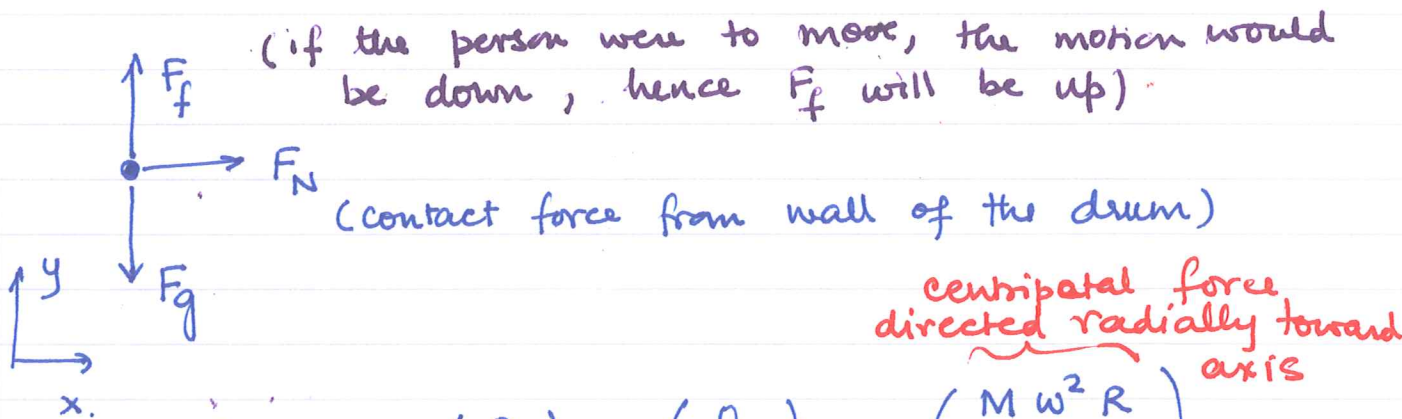 (if the person were to move, the motion would
be down, hence F_f will be up)
F_f
F_N
(contact force from wall of the drum)
F_g
y
x.
centripetal force
directed radially toward
axis
M ω² R